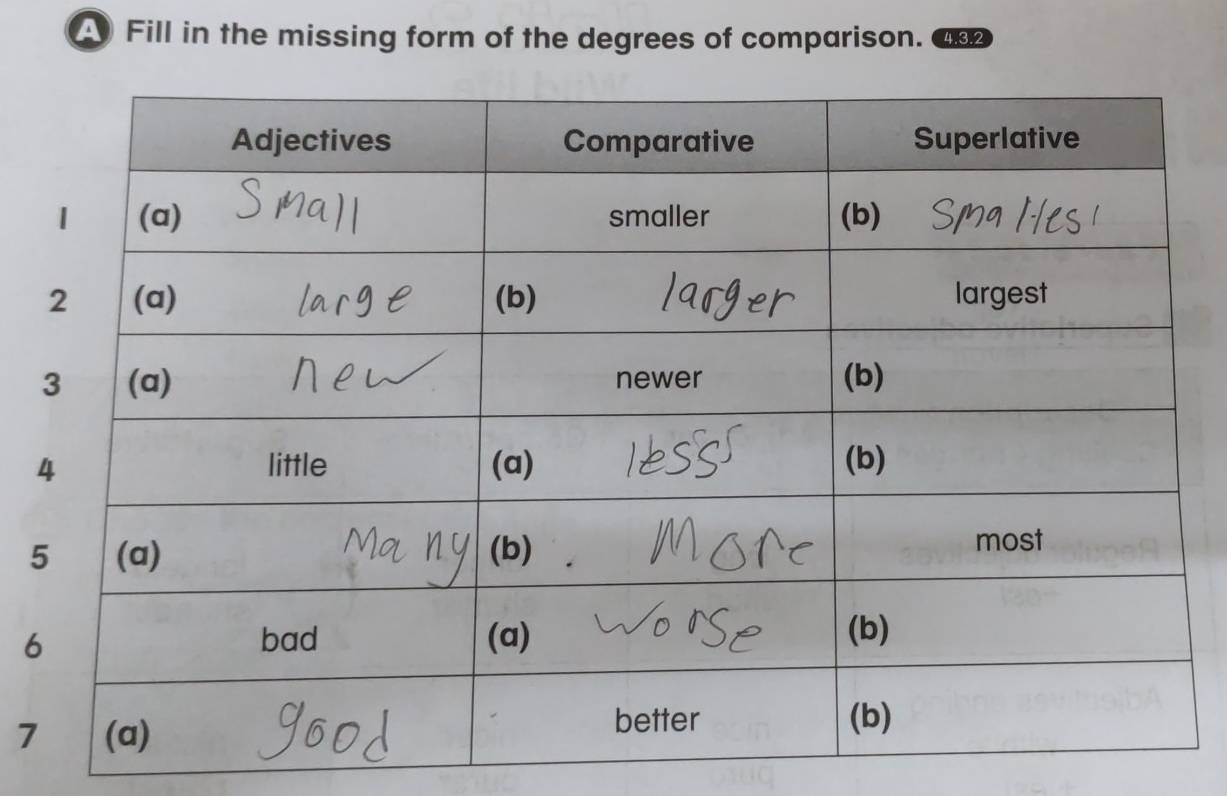 A Fill in the missing form of the degrees of comparison. 4.3.2
Adjectives Comparative Superlative
1 (a) Small smaller (b) Smallest
2 (a) large (b) larger largest
3 (a) new newer (b)
4 little (a) less (b)
5 (a) Many (b) More most
6 bad (a) worse (b)
7 (a) good better (b)